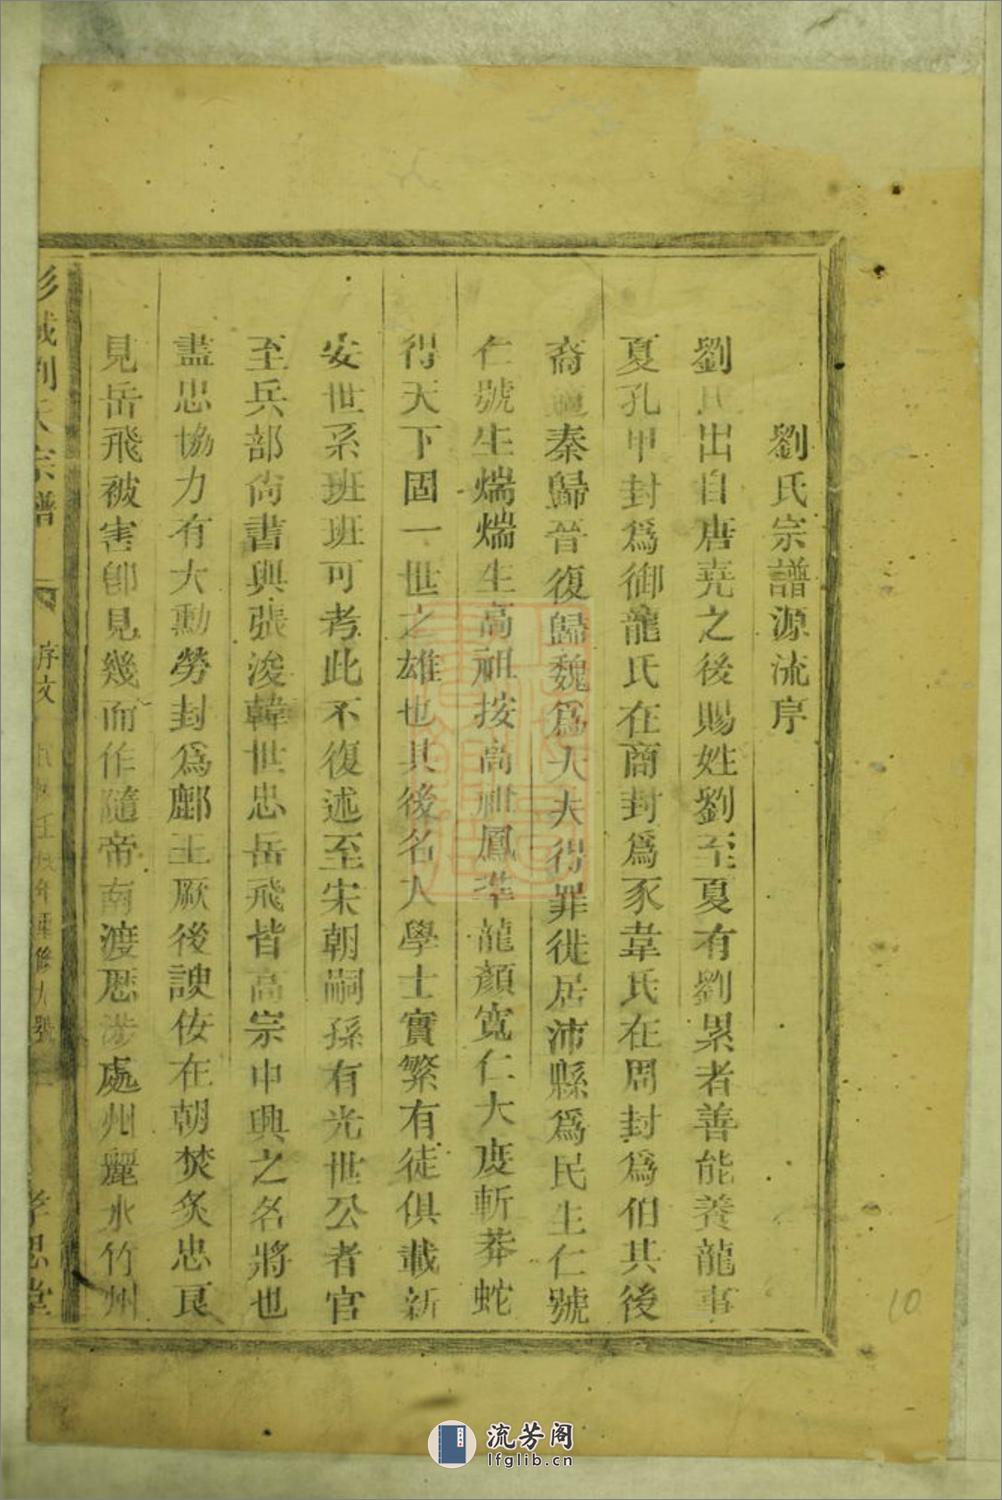 劉氏宗譜源流序
劉氏出自唐堯之後賜姓劉至夏有劉累者善能養龍事
夏孔甲封爲御龍氏在商封爲豕韋氏在周封爲伯其後
裔秦歸晉復歸魏爲大夫得罪徙居沛縣爲民生仁號
仁號生煓煓生高祖按高祖鳳準龍顏寬仁大度斬莽蛇
得天下固一世之雄也其後名人學士實繁有徒俱載新
安世系班班可考此不復述至宋朝嗣孫有光世公者官
至兵部尙書與張浚韓世忠岳飛皆高宗中興之名將也
盡忠協力有大勳勞封爲鄜王厥後諛佞在朝焚炙忠良
見岳飛被害卽見幾而作隨帝南渡歷涉處州麗水竹州
彭城劉氏宗譜 序文 重修 孝思堂
10
流芳阁
lfglib.cn